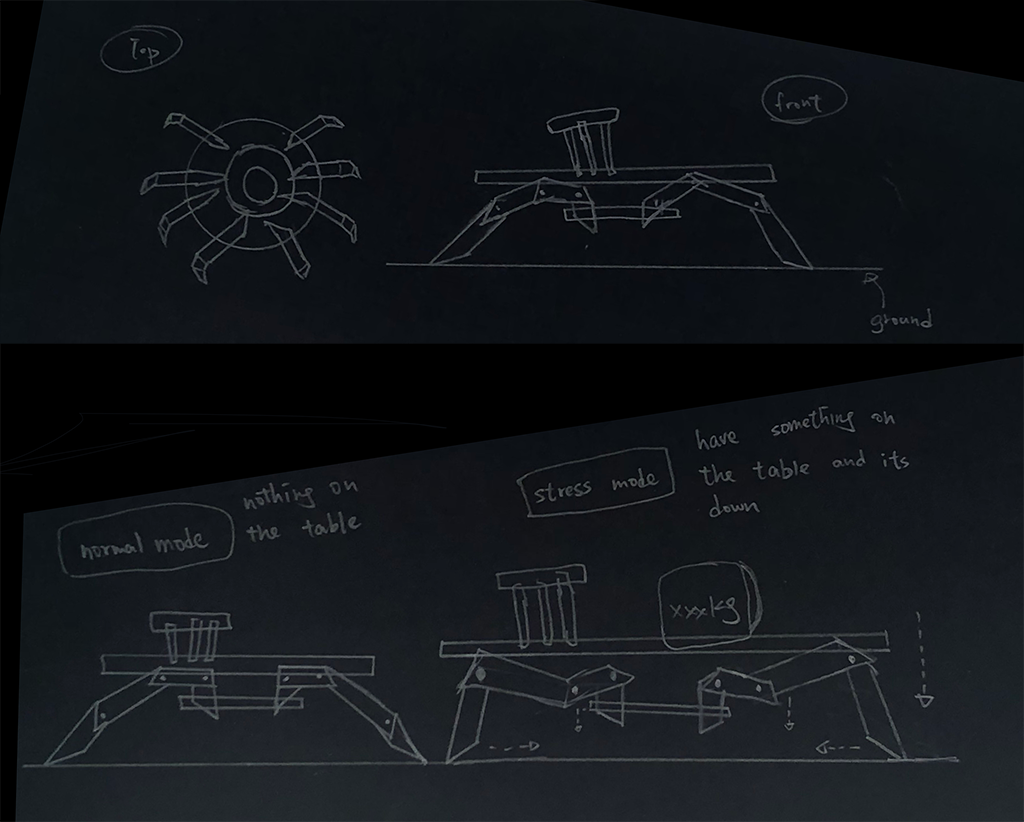 Top
front
ground
normal mode
nothing on
the table
stress mode
have something on
the table and its
down
xxxkg